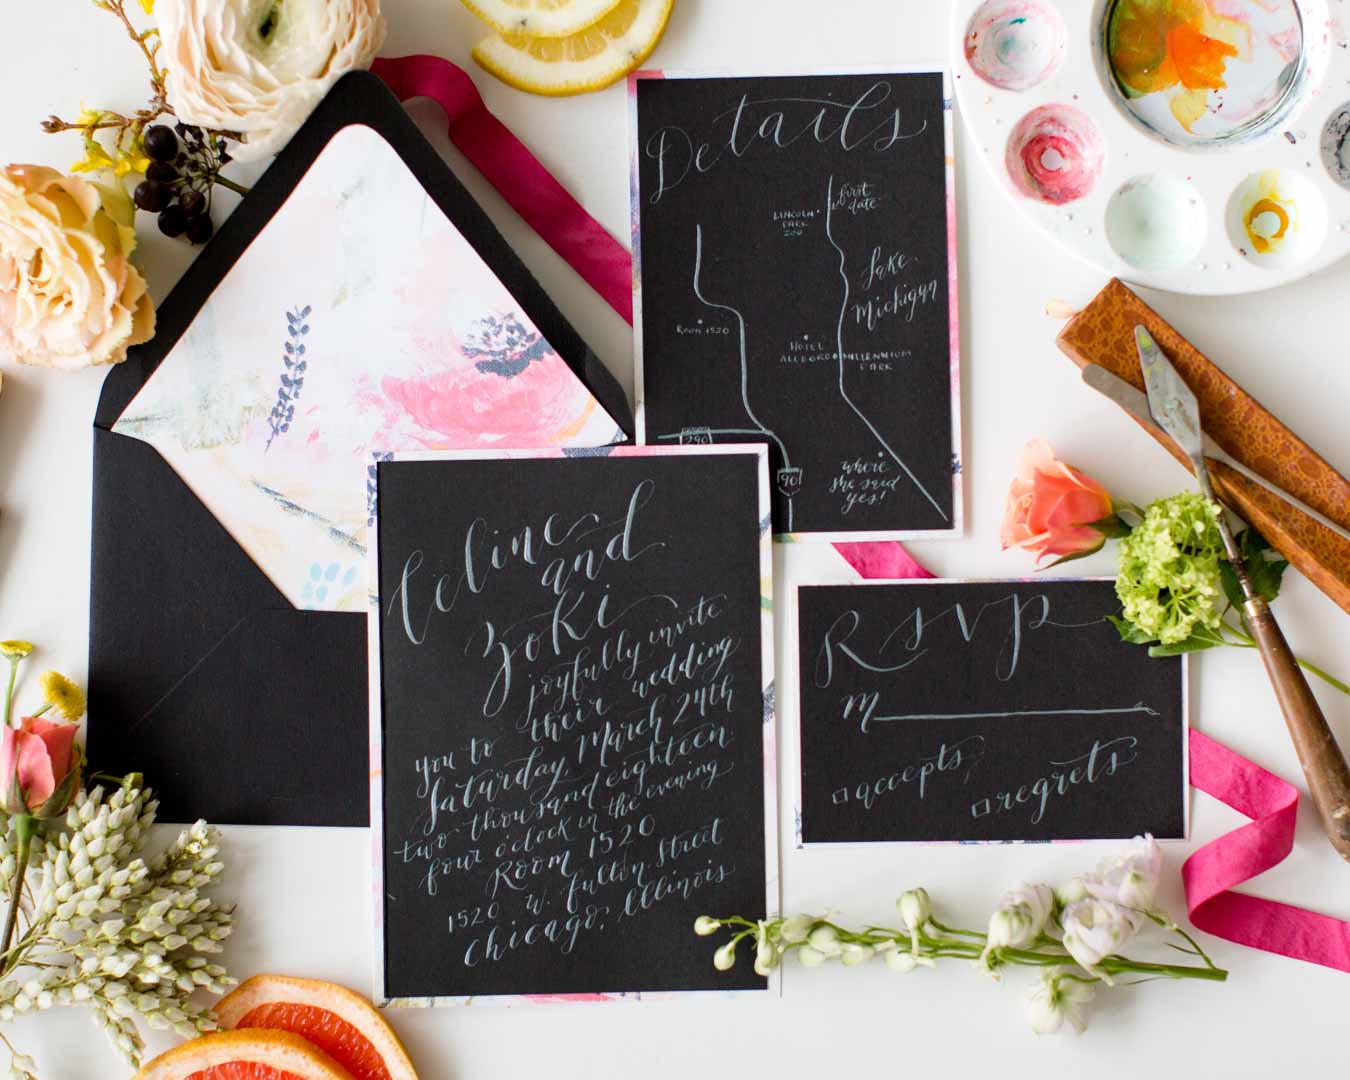 Details
first
date
LINCOLN
PARK
ZOO
Lake
Michigan
Room 1520
HOTEL
ALLEGRO
MILLENNIUM
PARK
290
90
where
she said
yes!
Celine
and
Zoki
joyfully invite
you to their wedding
Saturday, March 24th
two thousand eighteen
four o'clock in the evening
Room 1520
1520 W. Fulton Street
Chicago, Illinois
RSVP
M
accepts
regrets